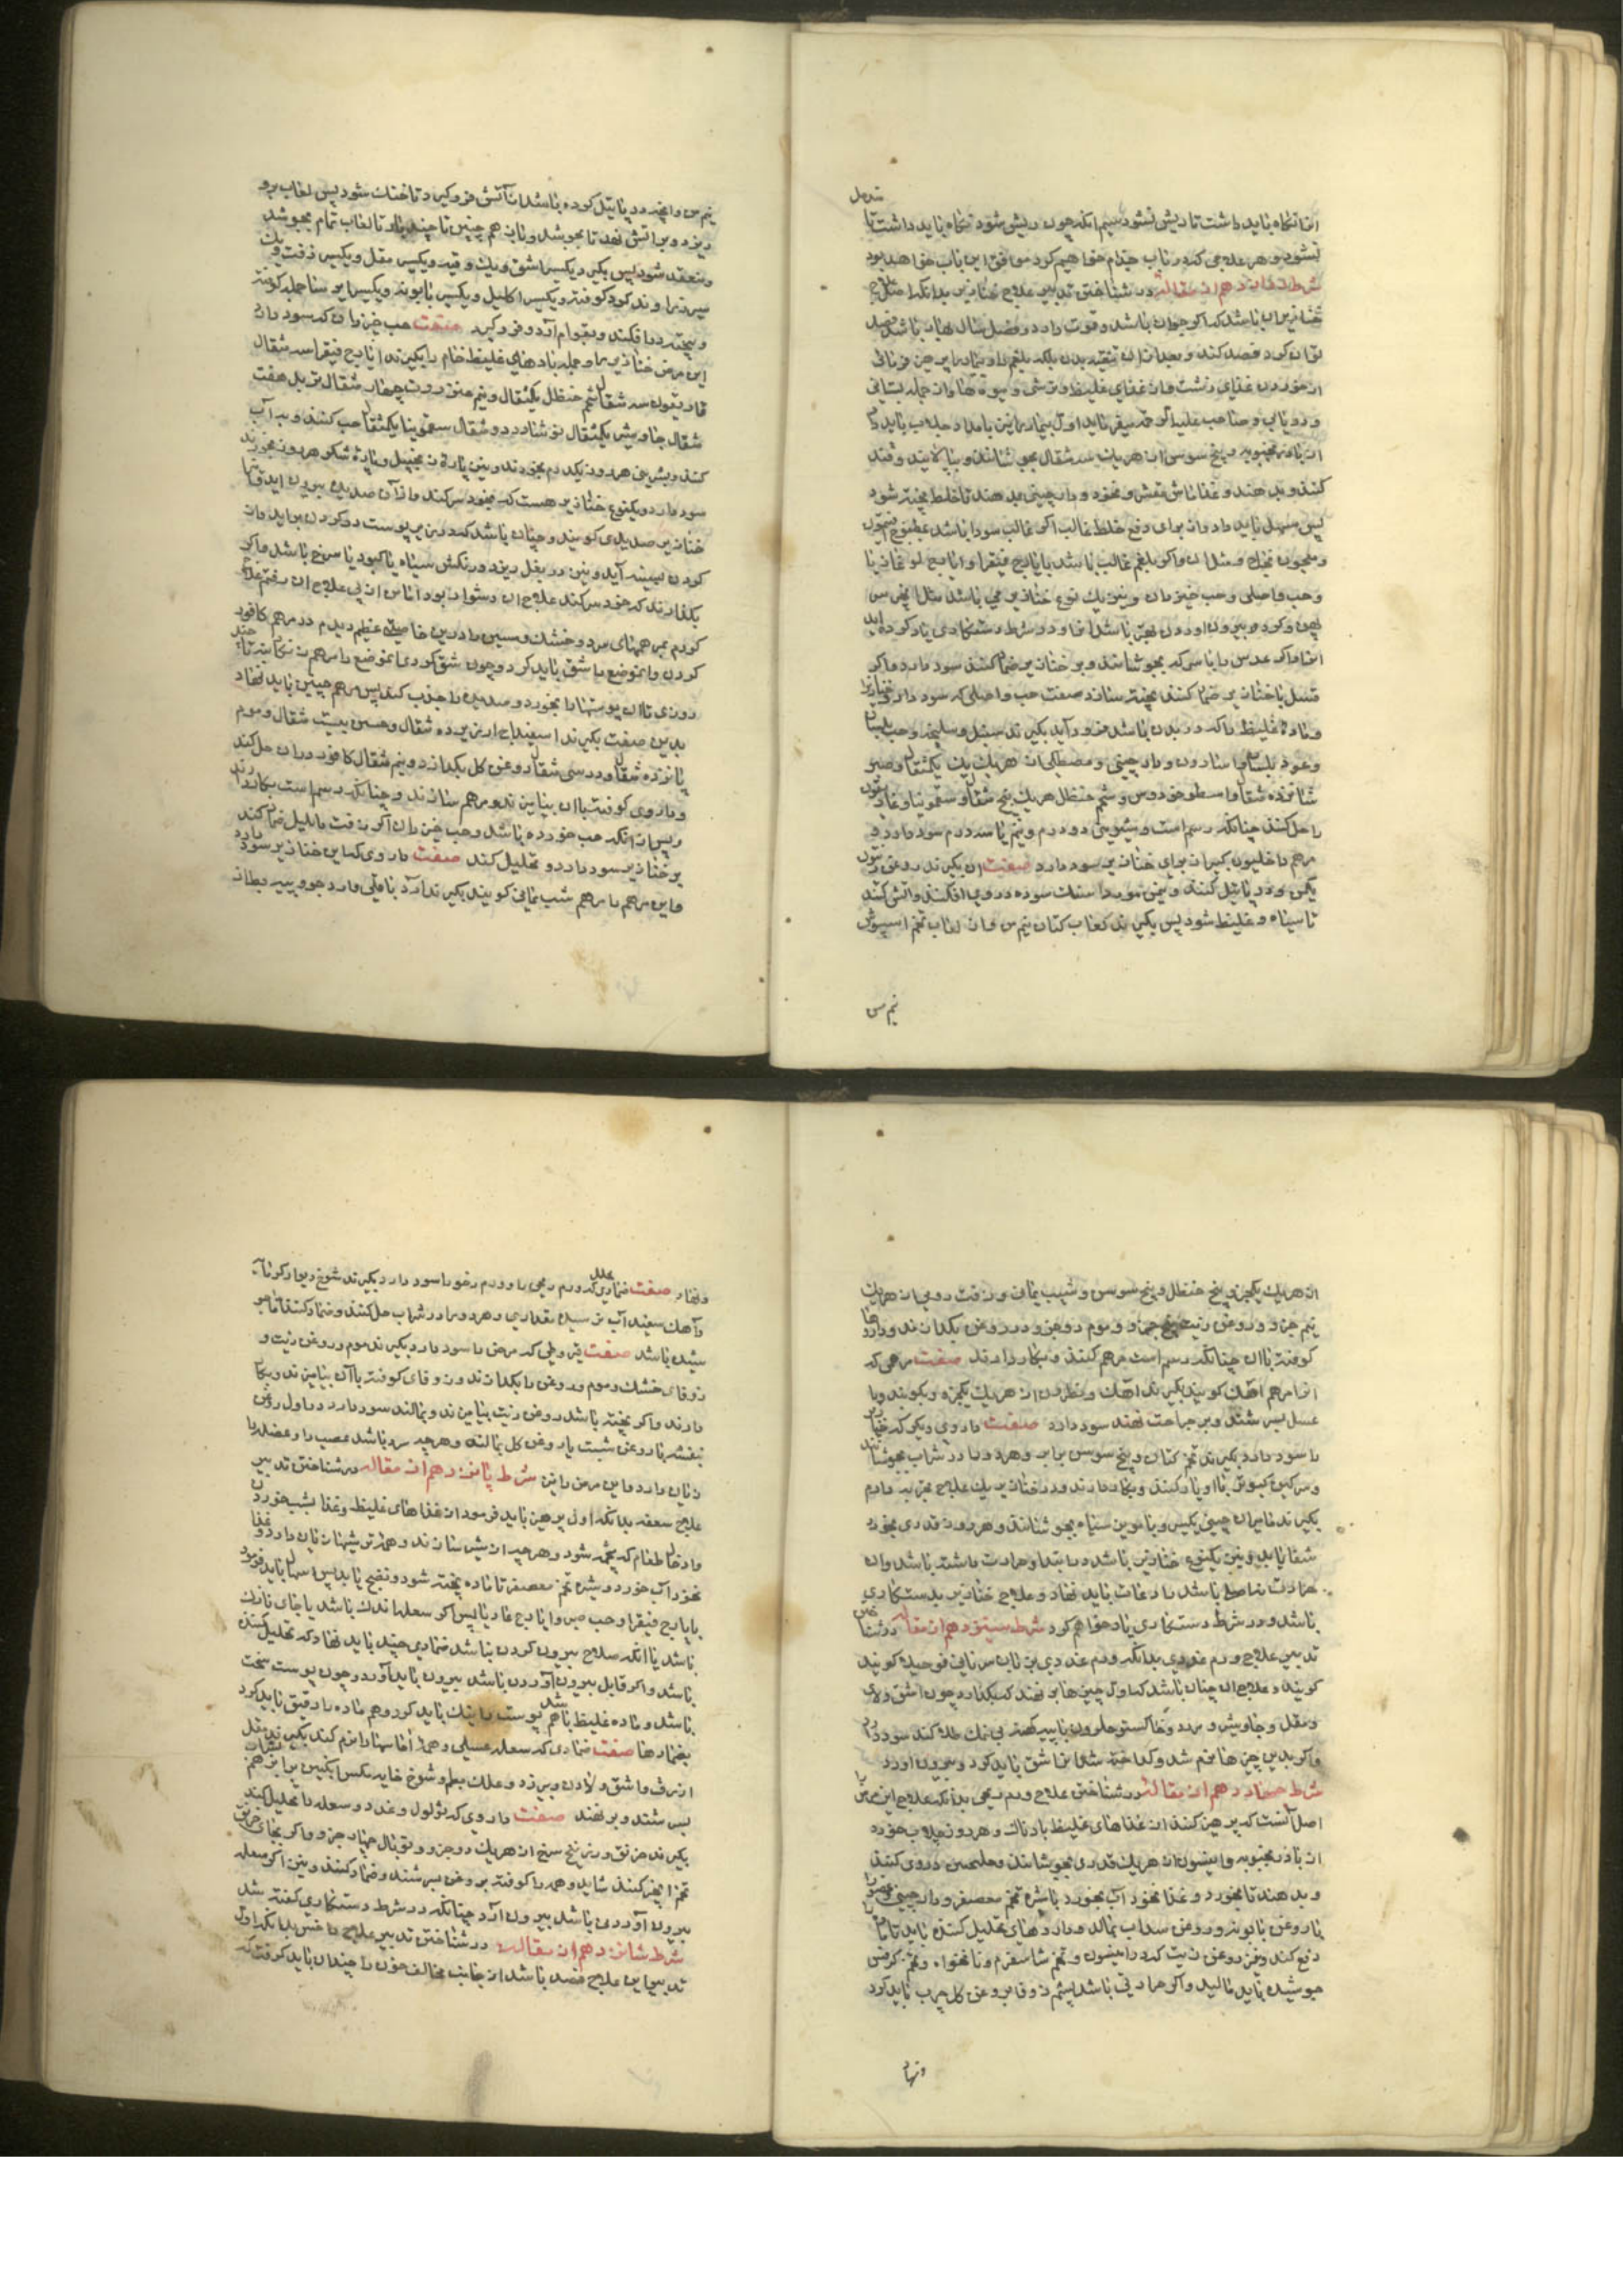 متدمل
انرا نگاه باید داشت تا ریش نشود سیم انکه چون ریش شود نگاه باید داشت تا
نشود و هر علاجی که در باب جذام خواهیم کرد موافق این باب خواهد بود
شرط دوازدهم از مقاله در شناختن تدبیر علاج خنازیر بدانکه اصل علاج
خنازیر ان باشد که اکر جوان باشد و قوت دارد و فصل سال بهار باشد فصد
توان کرد فصد کند و بعد از ان تنقیه بدن بلکه بلغم را و بیمار را پرهیز فرمائی
از خوردن غذای زشت و از غذای غلیظ و ترشی و میوه ها و از جمله بستانی
از بادرنجبویه و بیخ سوس از هر یک سه مثقال بجوشانند و بپالایند و قند
کنند و بدهند و غذا ماش مقشر و نخود و دارچینی بدهند تا خلط پخته شود
پس مسهل باید داد از برای دفع خلط غالب اکر غالب سودا باشد بمطبوخ افتیمون
و معجون نجاح و مثل ان و اکر بلغم غالب باشد بایارج فیقرا و ایارج لوغاذیا
انرا و اکر عدس را با سرکه بجوشانند و بر خنازیر ضماد کنند سود دارد و اکر
و مادهٔ غلیظ را که در بدن باشد فرود آید بکیرند سنبل و سلیخه و حب بلسان
و عود بلسان و اسارون و دارچینی و مصطکی از هر یک یک مثقال و صبر
شانزده مثقال و اسطوخودوس و شحم حنظل هر یک پنج مثقال و سقمونیا و غاریقون
را حل کنند چنانکه رسم است و شربتی دو درم و نیم یا سه درم سود دارد و
مرهم داخلیون کبیر از برای خنازیر سود دارد صفت ان بکیرند روغن زیتون
یکمن و در پاتیل کنند و نیمن مورداسنک سوده در وی افکنند و آتش کنند
تا سیاه و غلیظ شود پس بکیرند لعاب کتان نیم من و از لعاب تخم اسپیوش
نیم من
نیم من و انچه در پاتیل کرده باشد از آتش فروکیرد تا خنک شود پس لعاب برو
ریزد و بر آتش نهد تا بجوشد و باز هم چنین تا چند بار تا لعاب تمام بجوشد
و منعقد شود پس بکیرد یکسیر اشق و یک وقیه و یکسیر مقل و یکسیر زفت و یک
سیر زراوند کرد کوفته و یکسیر اکلیل و یکسیر بابونه و یکسیر ایرسا جمله کوفته
و بیخته در افکند و بقوام آرد و فروکیرد صفت حب خیزران که سود دارد
این مرض خنازیر را و جمله بادهای غلیظ خام را بکیرند ایارج فیقرا سه مثقال
غاریقون سه مثقال شحم حنظل یکمثقال و نیم مغز تربت چهار مثقال تربد هفت
مثقال جاوشیر یکمثقال نوشادر دو مثقال سقمونیا یکمثقال حب کنند و به آب
کنند و شربتی هر روز یکدرم بخورند و نیز پارهٔ زنجبیل و پارهٔ شکر هر روز بخورند
سود دارد و یکنوع خنازیر هست که بخود سر کند و از آن صدید بیرون آید و آنرا
خنازیر صدیدی کویند و چنان باشد که در زیر پوست در کردن برآید و از
کردن بسینه آید و نیز در بغل ریزد و رنکش سیاه یا کبود یا سرخ باشد و اکر
بکذارند که خود سر کند علاج ان دشوار بود
کردم بمرهمهای سرد و خشک و سبس را درین خاصیتی عظیم دیدم در مرهم کافور
کردن و انموضع را شق باید کرد و چون شق کردی انموضع را مرهم زنکار نه تا چند
روزی تا ان پوستها را بخورد و صدید را جذب کند پس مرهم چنین باید نهاد
بدین صفت بکیرند اسفیداج ارزیز ده مثقال و حسن بیست مثقال و موم
پانزده مثقال و در سی مثقال روغن کل بکدازد و نیم مثقال کافور در ان حل کند
و داروی کوفته با ان بیامیزند و مرهم سازند و چنانکه رسم است بکار دارند
و پس از انکه حب خورده باشد و حب خیزران اکر زفت با بلیل ضماد کنند
بر خنازیر سود دارد و تحلیل کند صفت داروی که این خنازیر را سود دارد
و این مرهم را مرهم شب یمانی کویند بکیرند آرد باقلی و ارد جو و پیه بط از
از هر یک یکجزو بیخ حنظل و بیخ سوسن و شب یمانی و زفت رومی از هر یک
نیم جزو و روغن زیت پنج جزو و موم دو جزو در روغن بکدازند و داروها
کوفته با ان چنانکه رسم است مرهم کنند و بکار دارند صفت مرهمی که
انرا مرهم آهک کویند بکیرند آهک و نطرون از هر یک یکجزو و بکوبند و با
عسل بسرشند و بر جراحت نهند سود دارد صفت داروی دیکر که خنازیر
را سود دارد بکیرند تخم کتان و بیخ سوسن برابر و هر دو را در شراب بجوشانند
و سرکین کبوتر با او یار کنند و بکار دارند و در خنازیر یک علاج مجرب دارم
بکیرند مامیران چینی یکسیر و با مویز سیاه بجوشانند و هر روز قدری بخورد
شفا یابد و نیز یکنوع خنازیر باشد در ابتدا و حرارت داشته باشد و ان
حرارت را مراعات باید نهاد و علاج خنازیر بدستکاری
باشد و در شرط دستکاری یاد خواهم کرد شرط سیزدهم از مقاله در شناختن
تدبیر علاج ورم غددی بدانکه ورم غددی بزبان سریانی فوجیلا کویند
کویند و علاج ان چنان باشد که اول چیزها بر نهند که بکدازد چون اشق و لادن
و مقل و جاوشیر و برزد و خاکستر حلزون با پیه کهنه بی نمک طلا کنند سود دارد
و اکر بدین چیزها نرم شد و کداخته شد انرا شق باید کرد و بیرون آورد
شرط چهاردهم از مقاله در شناختن علاج ورم ریحی بدانکه علاج این مرض را
اصل آنست که پرهیز کنند از غذاهای غلیظ بادناک و هر روز جلاب خورد
از بادرنجبویه و انیسون از هر یک قدری بجوشانند و جلنجبین در وی کنند
و بدهند تا بخورد و غذا نخود آب بخورد با شیرهٔ تخم معصفر و دارچینی و عضو را
با روغن بابونه و روغن سداب بمالد و داروهای تحلیل کننده باید تا باد را
دفع کند و نیز روغن زیت که در انیسون و تخم شاسفرم و نانخواه و تخم کرفس
جوشیده باید مالید و اکر حرارتی باشد پشم زوفا بروغن کل چرب باید کرد
ونهاد
ونهاد صفت ضمادی که ورم ریحی را و ورم رخو را سود دارد بکیرند شوخ دیوار کرمابه
و آهک سفید آب نرسیده مقداری و هر دو را در شراب حل کنند و ضماد کنند
شده باشد صفت قیروطی که مرض را سود دارد بکیرند موم و روغن زیت و
زوفای خشک و موم و روغن را بکدازند و زوفای کوفته با آن بیامیزند و بکار
دارند و اکر پخته باشد روغن زیت بیامیزند و بمالند سود دارد در اول روغن
بنفشه یا روغن شبت یا روغن کل بمالند و هر چه سرد باشد عصب را و عضله را
زیان دارد و این مرض را نیز شرط پانزدهم از مقاله در شناختن تدبیر
علاج سعفه بدانکه اول پرهیز باید فرمود از غذاهای غلیظ و غذا بشب خوردن
و ادخال طعام که تخمه شود و هر چه از شیر سازند و همه ترشیها زیان دارد و غذا
نخود آب خورد و شیره تخم معصفر تا ماده پخته شود و نضج یابد پس اسهال باید فرمود
بایارج فیقرا و حب صبر و ایارج غاریا پس اکر سعله اندک باشد یا جای نازک
باشد یا انکه صلاح بیرون کردن نباشد ضمادی چند باید نهاد که تحلیل کننده
باشد و اکر قابل بیرون آوردن باشد بیرون باید آورد و چون پوست سخت
باشد و ماده غلیظ باشد هم پوست را تنک باید کرد و هم ماده را رقیق باید کرد
بضمادها صفت ضمادی که سعله عسلی و همه آماسها را نرم کند بکیرند مقل
ازرق و اشق و لادن و بیرزد و علک بطم و شوخ خایه مکس انکبین برابر هم
بسرشند و بر نهند صفت داروی که ثؤلول و غدد و سعله را تحلیل کند
بکیرند خربق و زرنیخ سرخ از هر یک دو جزو و توبال چهار جزو و اکر بجای خربق
تخم انجره کنند شاید و همه را کوفته بروغن بسرشند و ضماد کنند و نیز اکر سعله
بیرون آوردنی باشد بیرون آرد چنانکه در شرط دستکاری کفته شد
شرط شانزدهم از مقاله در شناختن تدبیر علاج داخس بدانکه اول
تدبیر این علاج فصد باشد از جانب مخالف خون را چندان باید کرفت که